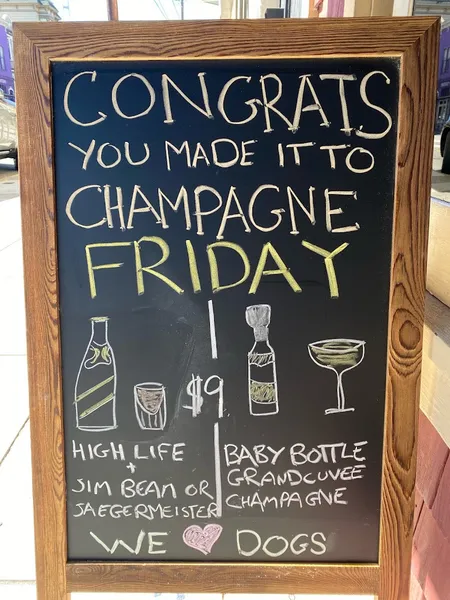 CONGRATS
YOU MADE IT TO
CHAMPAGNE
FRIDAY
$9
HIGH LIFE
+
JIM BEAM OR
JAEGERMEISTER
BABY BOTTLE
GRANDCUVEE
CHAMPAGNE
WE ♥ DOGS